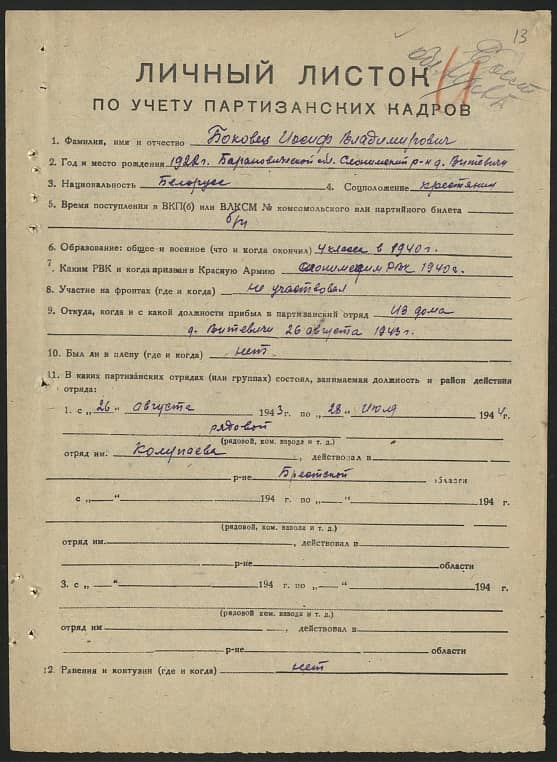 13
ЛИЧНЫЙ ЛИСТОК
ПО УЧЕТУ ПАРТИЗАНСКИХ КАДРОВ
1. Фамилия, имя и отчество Боковец Иосиф Владимирович
2. Год и место рождения 1922г. Барановической обл. Слонимский р-н д. Витевичи
3. Национальность Белорус 4. Соцположение крестянин
5. Время поступления в ВКП(б) или ВЛКСМ № комсомольского или партийного билета
б/п
6. Образование: общее и военное (что и когда окончил) 4 класса в 1940 г.
7. Каким РВК и когда призван в Красную Армию Слонимским РВК 1940г.
8. Участие на фронтах (где и когда) не участвовал
9. Откуда, когда и с какой должности прибыл в партизанский отряд Из дома
д. Витевичи 26 августа 1943г.
10. Был ли в плену (где и когда) нет
11. В каких партизанских отрядах (или группах) состоял, занимаемая должность и район действия
отряда:
1. с „26“ августа 1943 г. по „28“ Июля 1944 г.
рядовой
(рядовой, ком. взвода и т. д.)
отряд им. Колупаева, действовал в
р-не Брестской области
с „ “ 194 г. по „ “ 194 г.
(рядовой, ком. взвода и т. д.)
отряд им. , действовал в
р-не области
3. с „ “ 194 г. по „ “ 194 г.
(рядовой, ком. взвода и т. д.)
отряд им , действовал в
р-не области
12. Ранения и контузии (где и когда) нет